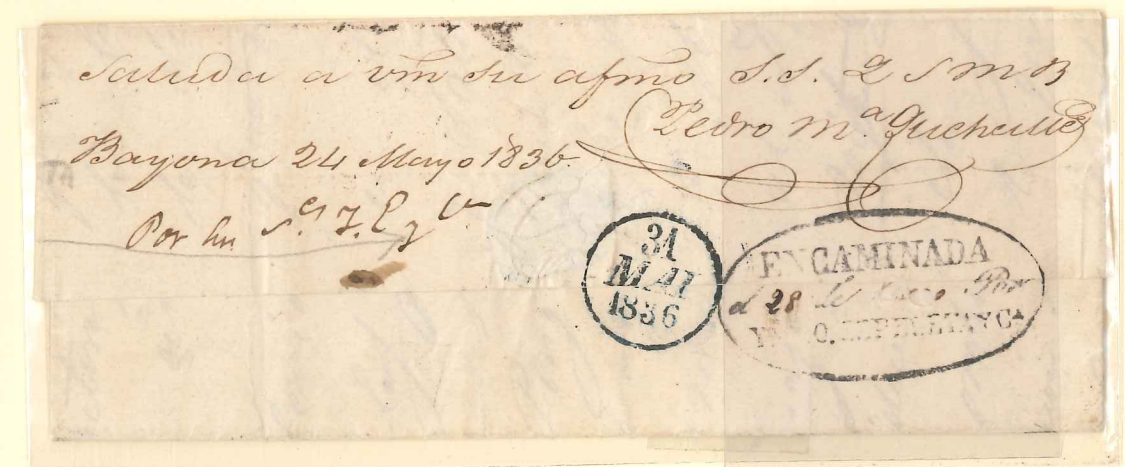 Saluda a vm su afmo S. S. Q S M B
Pedro Ma
Bayona 24 Mayo 1836
Por
31
MAI
1836
ENCAMINADA
el 28 de Mayo Por
Y Ca